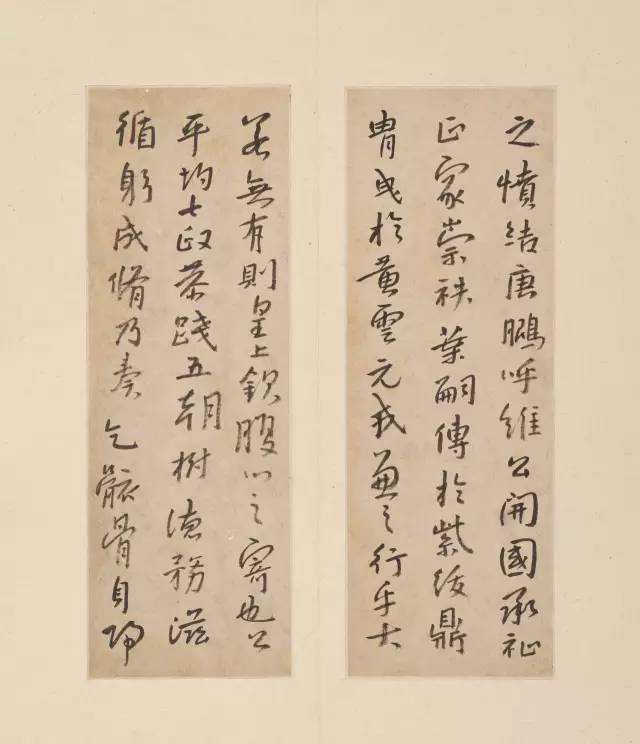 之憤結唐鵬呼維公開國承祉
正家崇秩葉嗣傳於紫綬鼎
胄或於黃雲元戎兼之行乎大
若無有則皇上欽腹心之寄也公
平均七政荼踐五朝樹德務滋
循躬成脩乃奏乞骸骨自歸